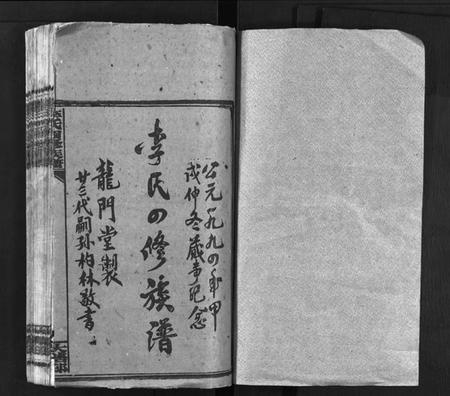 公元一九九四年甲
戌仲冬蒇事纪念
李氏四修族譜
龍門堂製
廿三代嗣孙柏林敬書